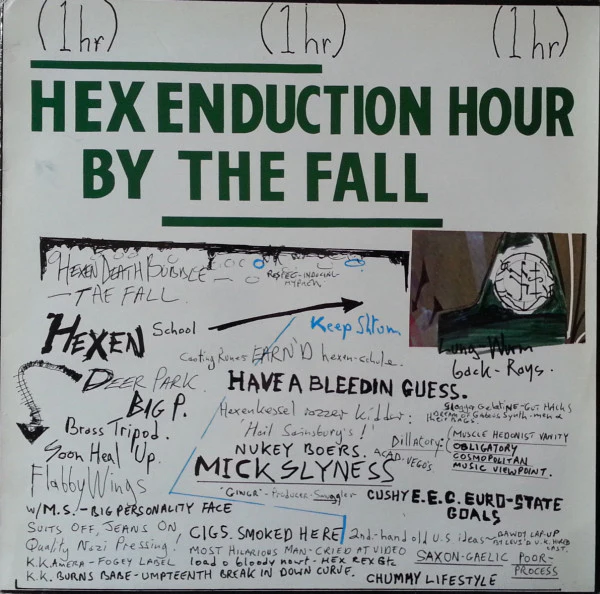 (1 hr) (1 hr) (1 hr)
HEX ENDUCTION HOUR
BY THE FALL
HEXEN DEATH BUBBLE
— THE FALL.
RESPEC-INDUCING-
HYPHEN
HEXEN School
Keep Shtum
Lung Worm
Gack-Rays.
Casting Runes EARN'D hexen-schule.
DEER PARK.
HAVE A BLEEDIN GUESS.
BIG P.
Hexenkessel rozzer killer:
'Hail Sainsbury's!'
Brass Tripod.
NUKEY BOERS.
Dillatory:
MUSCLE HEDONIST VANITY
OBLIGATORY
COSMOPOLITAN
MUSIC VIEWPOINT.
Soon Heal Up.
ACAD. VEGO'S.
MICK SLYNESS
Flabby Wings
"GINGR"-Producer-Smuggler
CUSHY E.E.C. EURO-STATE
GOALS
W/M.S. - BIG PERSONALITY FACE
SUITS OFF, JEANS ON
CIGS. SMOKED HERE
2nd.-hand old U.S ideas~
Quality Nazi Pressing!
MOST HILARIOUS MAN-CRIED AT VIDEO
SAXON-GAELIC POOR-
PROCESS
K.K. CAMERA - FOGEY LABEL
load o bloody nowt - HEX REX
K.K. BURNS BABE - UMPTEENTH BREAK IN DOWN CURVE.
CHUMMY LIFESTYLE